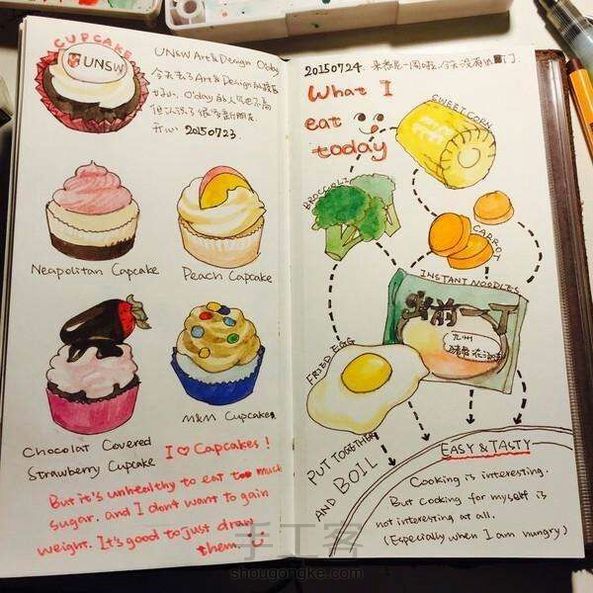 CUPCAKE
UNSW
UNSW Art & Design Oday
今天去了Art & Design的校区
O'day的人气也不高
但认识了很多新朋友.
开心 20150723
Neapolitan Capcake
Peach Capcake
Chocolat Covered
Strawberry Cupcake
M&M Cupcakes
I ♡ Capcakes !
But it's unhealthy to eat too much
sugar. and I don't want to gain
weight. It's good to just draw
them.
20150724. 来悉尼一周啦. 今天没有出门.
What I
eat
today
SWEET CORN
BROCCOLI
CARROT
INSTANT NOODLES
出前一丁
九州
FRIED EGG
PUT TOGETHER
AND BOIL
EASY & TASTY
Cooking is interesting.
But cooking for myself is
not interesting at all.
(Especially when I am hungry)
手工客
shougongke.com